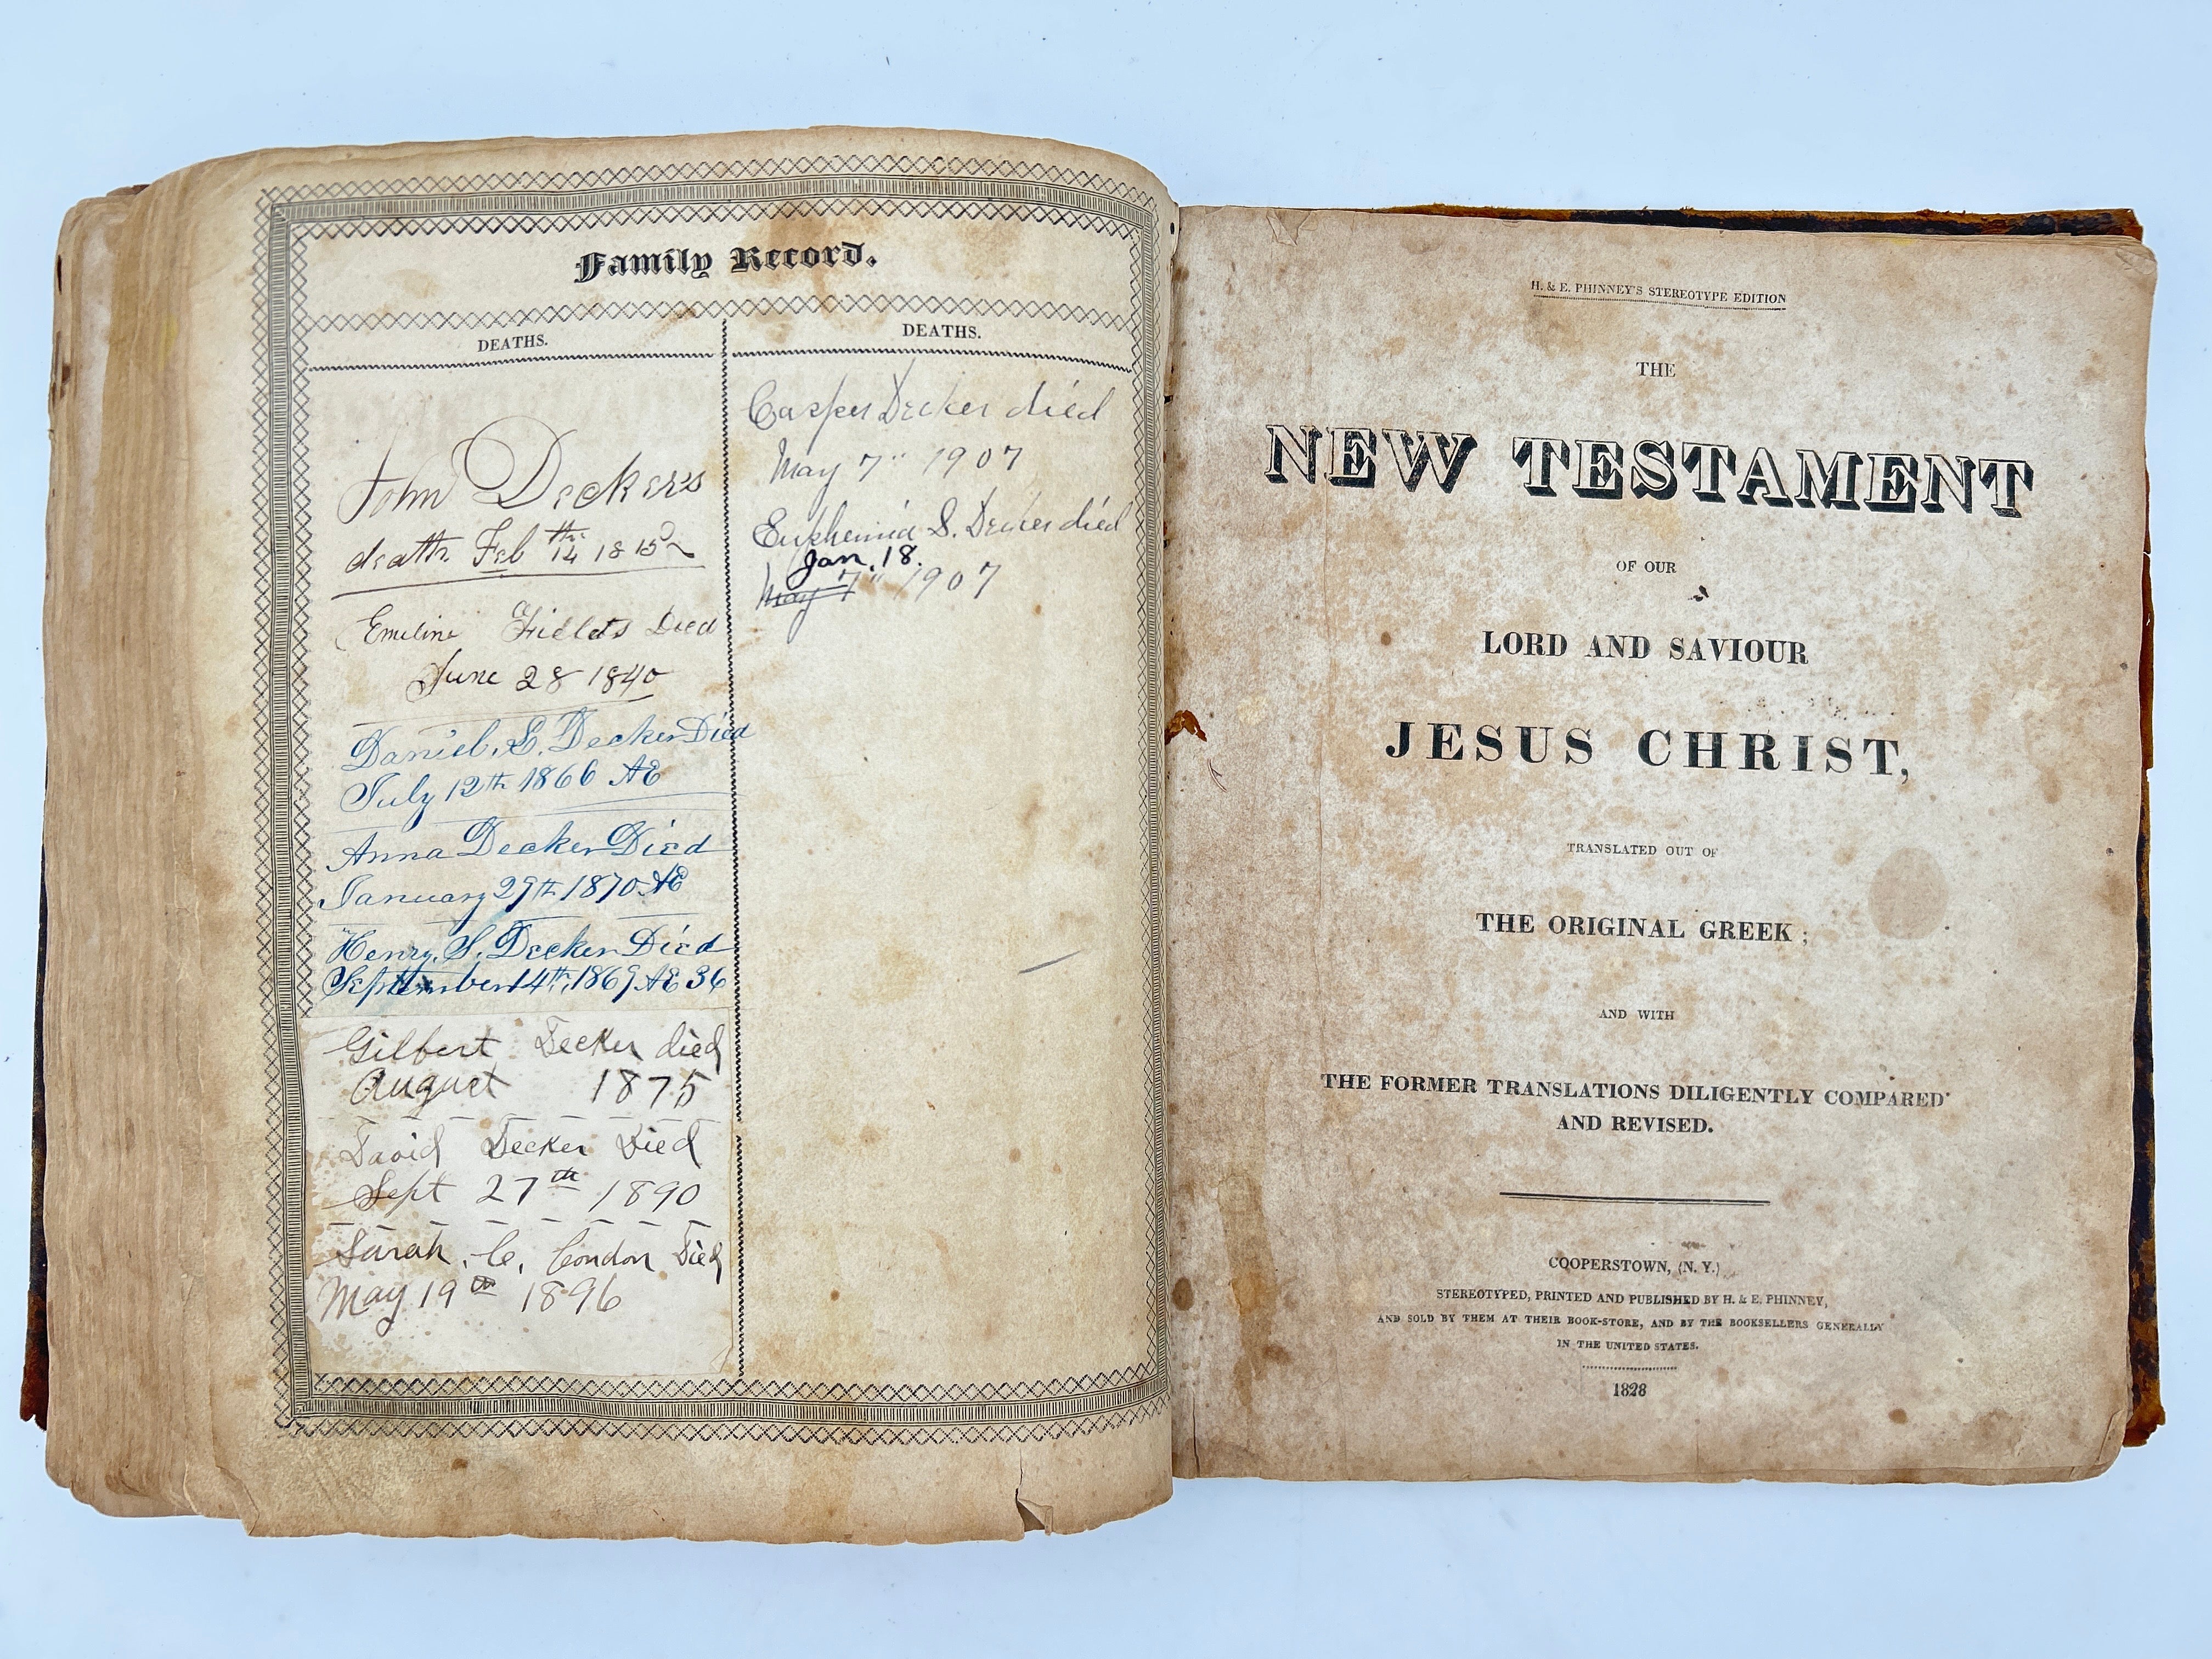 Family Record.
DEATHS.
John Decker's
death. Feb 14th 1815
Emeline Fields Died
June 28 1840
Daniel. S. Decker Died
July 12th 1866 AE
Anna Decker Died
January 29th 1870 AE
Henry. S. Decker Died
September 14th, 1869 AE 36
Gilbert Decker died
August 1875
David Decker Died
Sept 27th 1890
Sarah. C. Condon Died
May 19th 1896
DEATHS.
Casper Decker died
May 7" 1907
Euphemia S. Decker died
Jan. 18.
May 7" 1907
H. & E. PHINNEY'S STEREOTYPE EDITION
THE
NEW TESTAMENT
OF OUR
LORD AND SAVIOUR
JESUS CHRIST,
TRANSLATED OUT OF
THE ORIGINAL GREEK;
AND WITH
THE FORMER TRANSLATIONS DILIGENTLY COMPARED
AND REVISED.
COOPERSTOWN, (N. Y.)
STEREOTYPED, PRINTED AND PUBLISHED BY H. & E. PHINNEY,
AND SOLD BY THEM AT THEIR BOOK-STORE, AND BY THE BOOKSELLERS GENERALLY
IN THE UNITED STATES.
1828